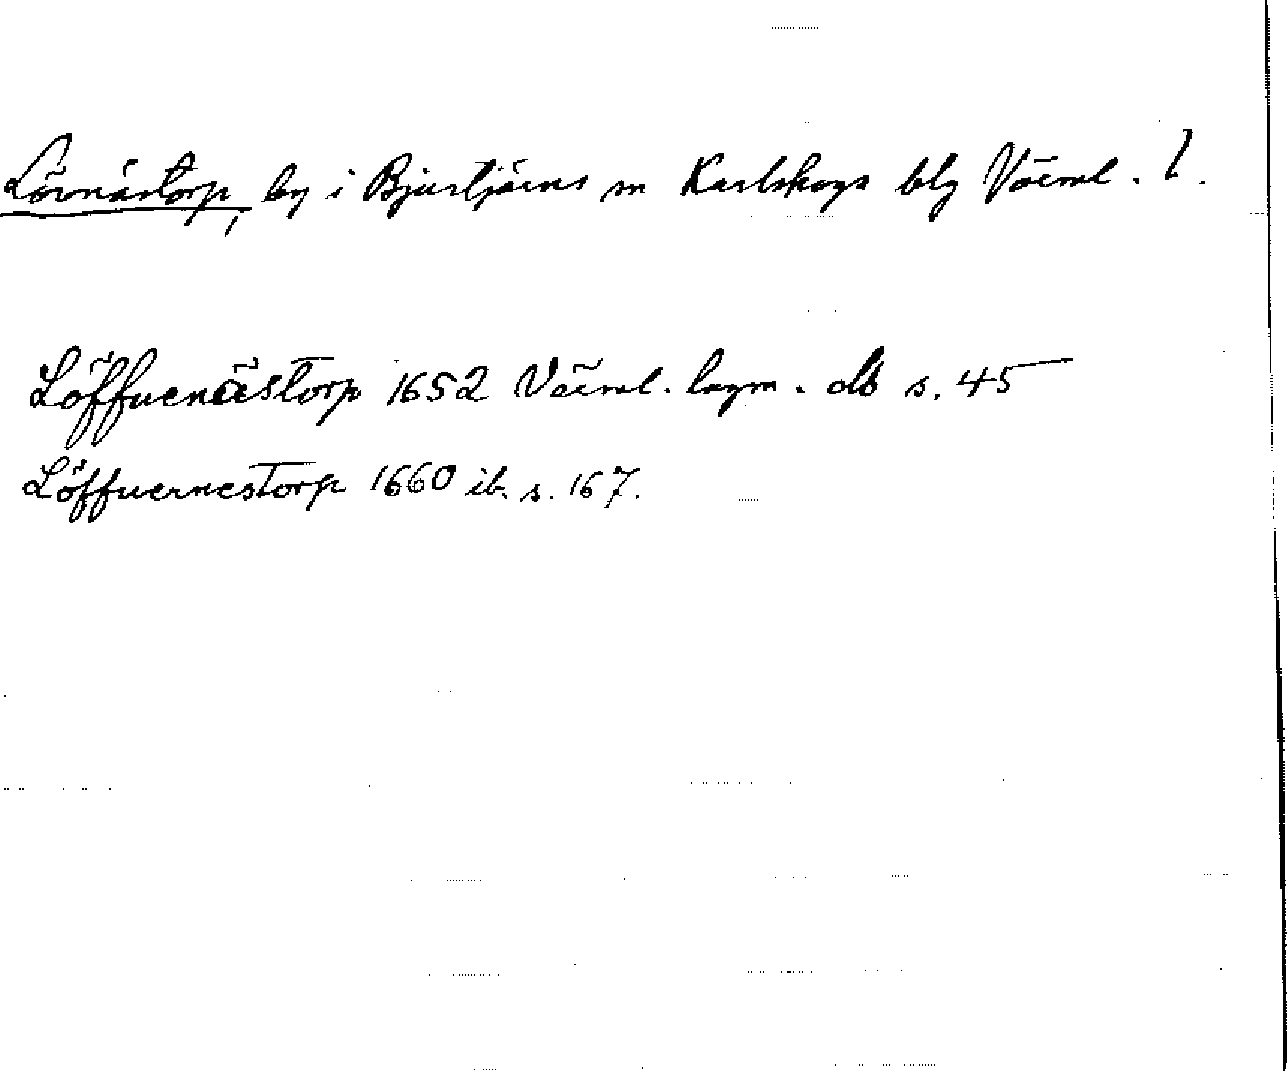 Lövnästorp, by i Bjurtjärns sn Karlskogs blg Värml. l.
Löffuenästorp 1652 Värml. lagm. db s. 45
Löffuernestorp 1660 ib. s. 167.